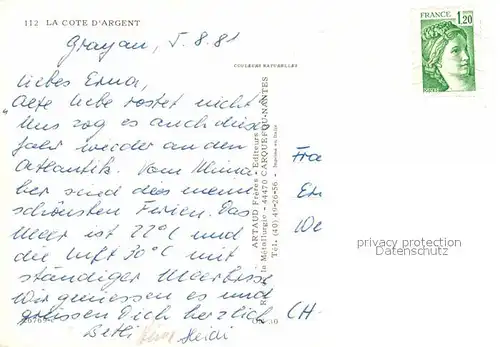 112 LA COTE D'ARGENT
Grayan, 5.8.81
COULEURS NATURELLES
FRANCE 1,20
Liebes Erna,
"Alte Liebe rostet nicht"
Uns zog es auch dieses
Jahr wieder an den
Atlantik. Vom Klima
her sind das
schönsten Ferien. Das
Meer ist 22°C und
die Luft 30°C mit
ständiger Meerbrise
Wir geniessen es und
grüssen Dich herzlich
Betli Heidi
ARTAUD Frères - Editeurs
la Métallurgie - 44470 CARQUEFOU-NANTES
Tél. (40) 49-26-56 - Imprimé en Italie
Fra
Er
We
CH-
privacy protection
Datenschutz